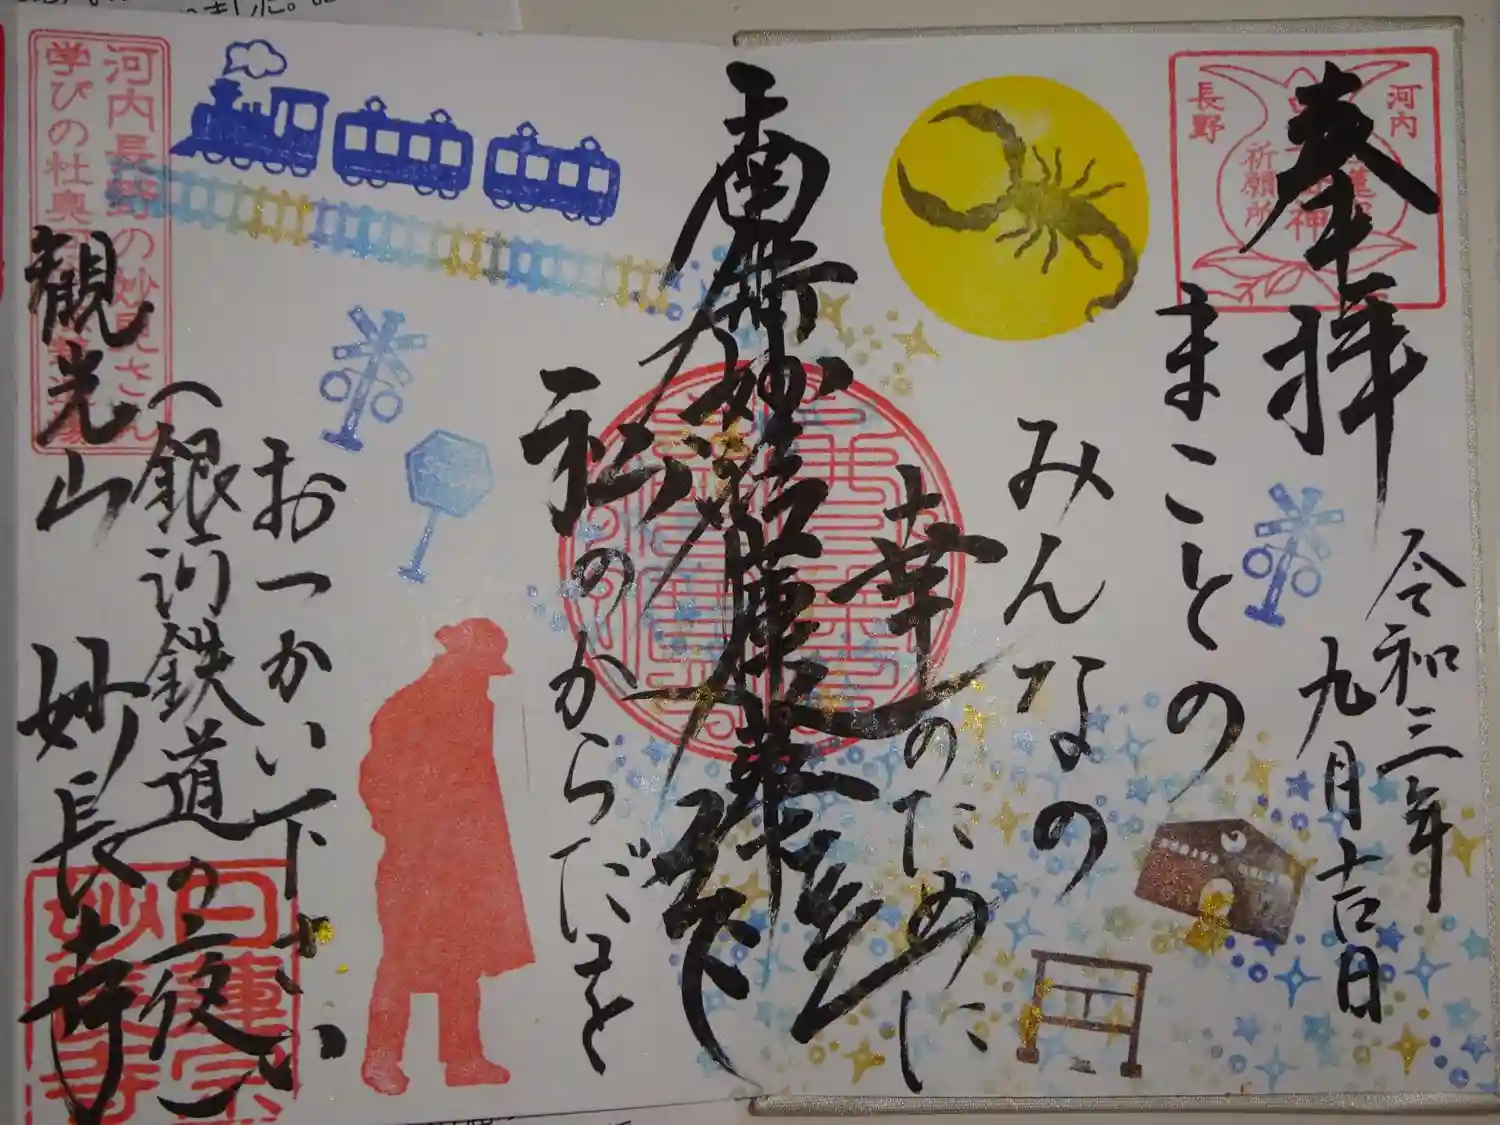 奉拝
令和三年
九月吉日
まことの
みんなの
幸のために
南無妙法蓮華経
私のからだを
おつかい下さい
(銀河鉄道の夜)
観光山 妙長寺
河内
長野
祈願所
河内長野の妙見さん
学びの杜奥